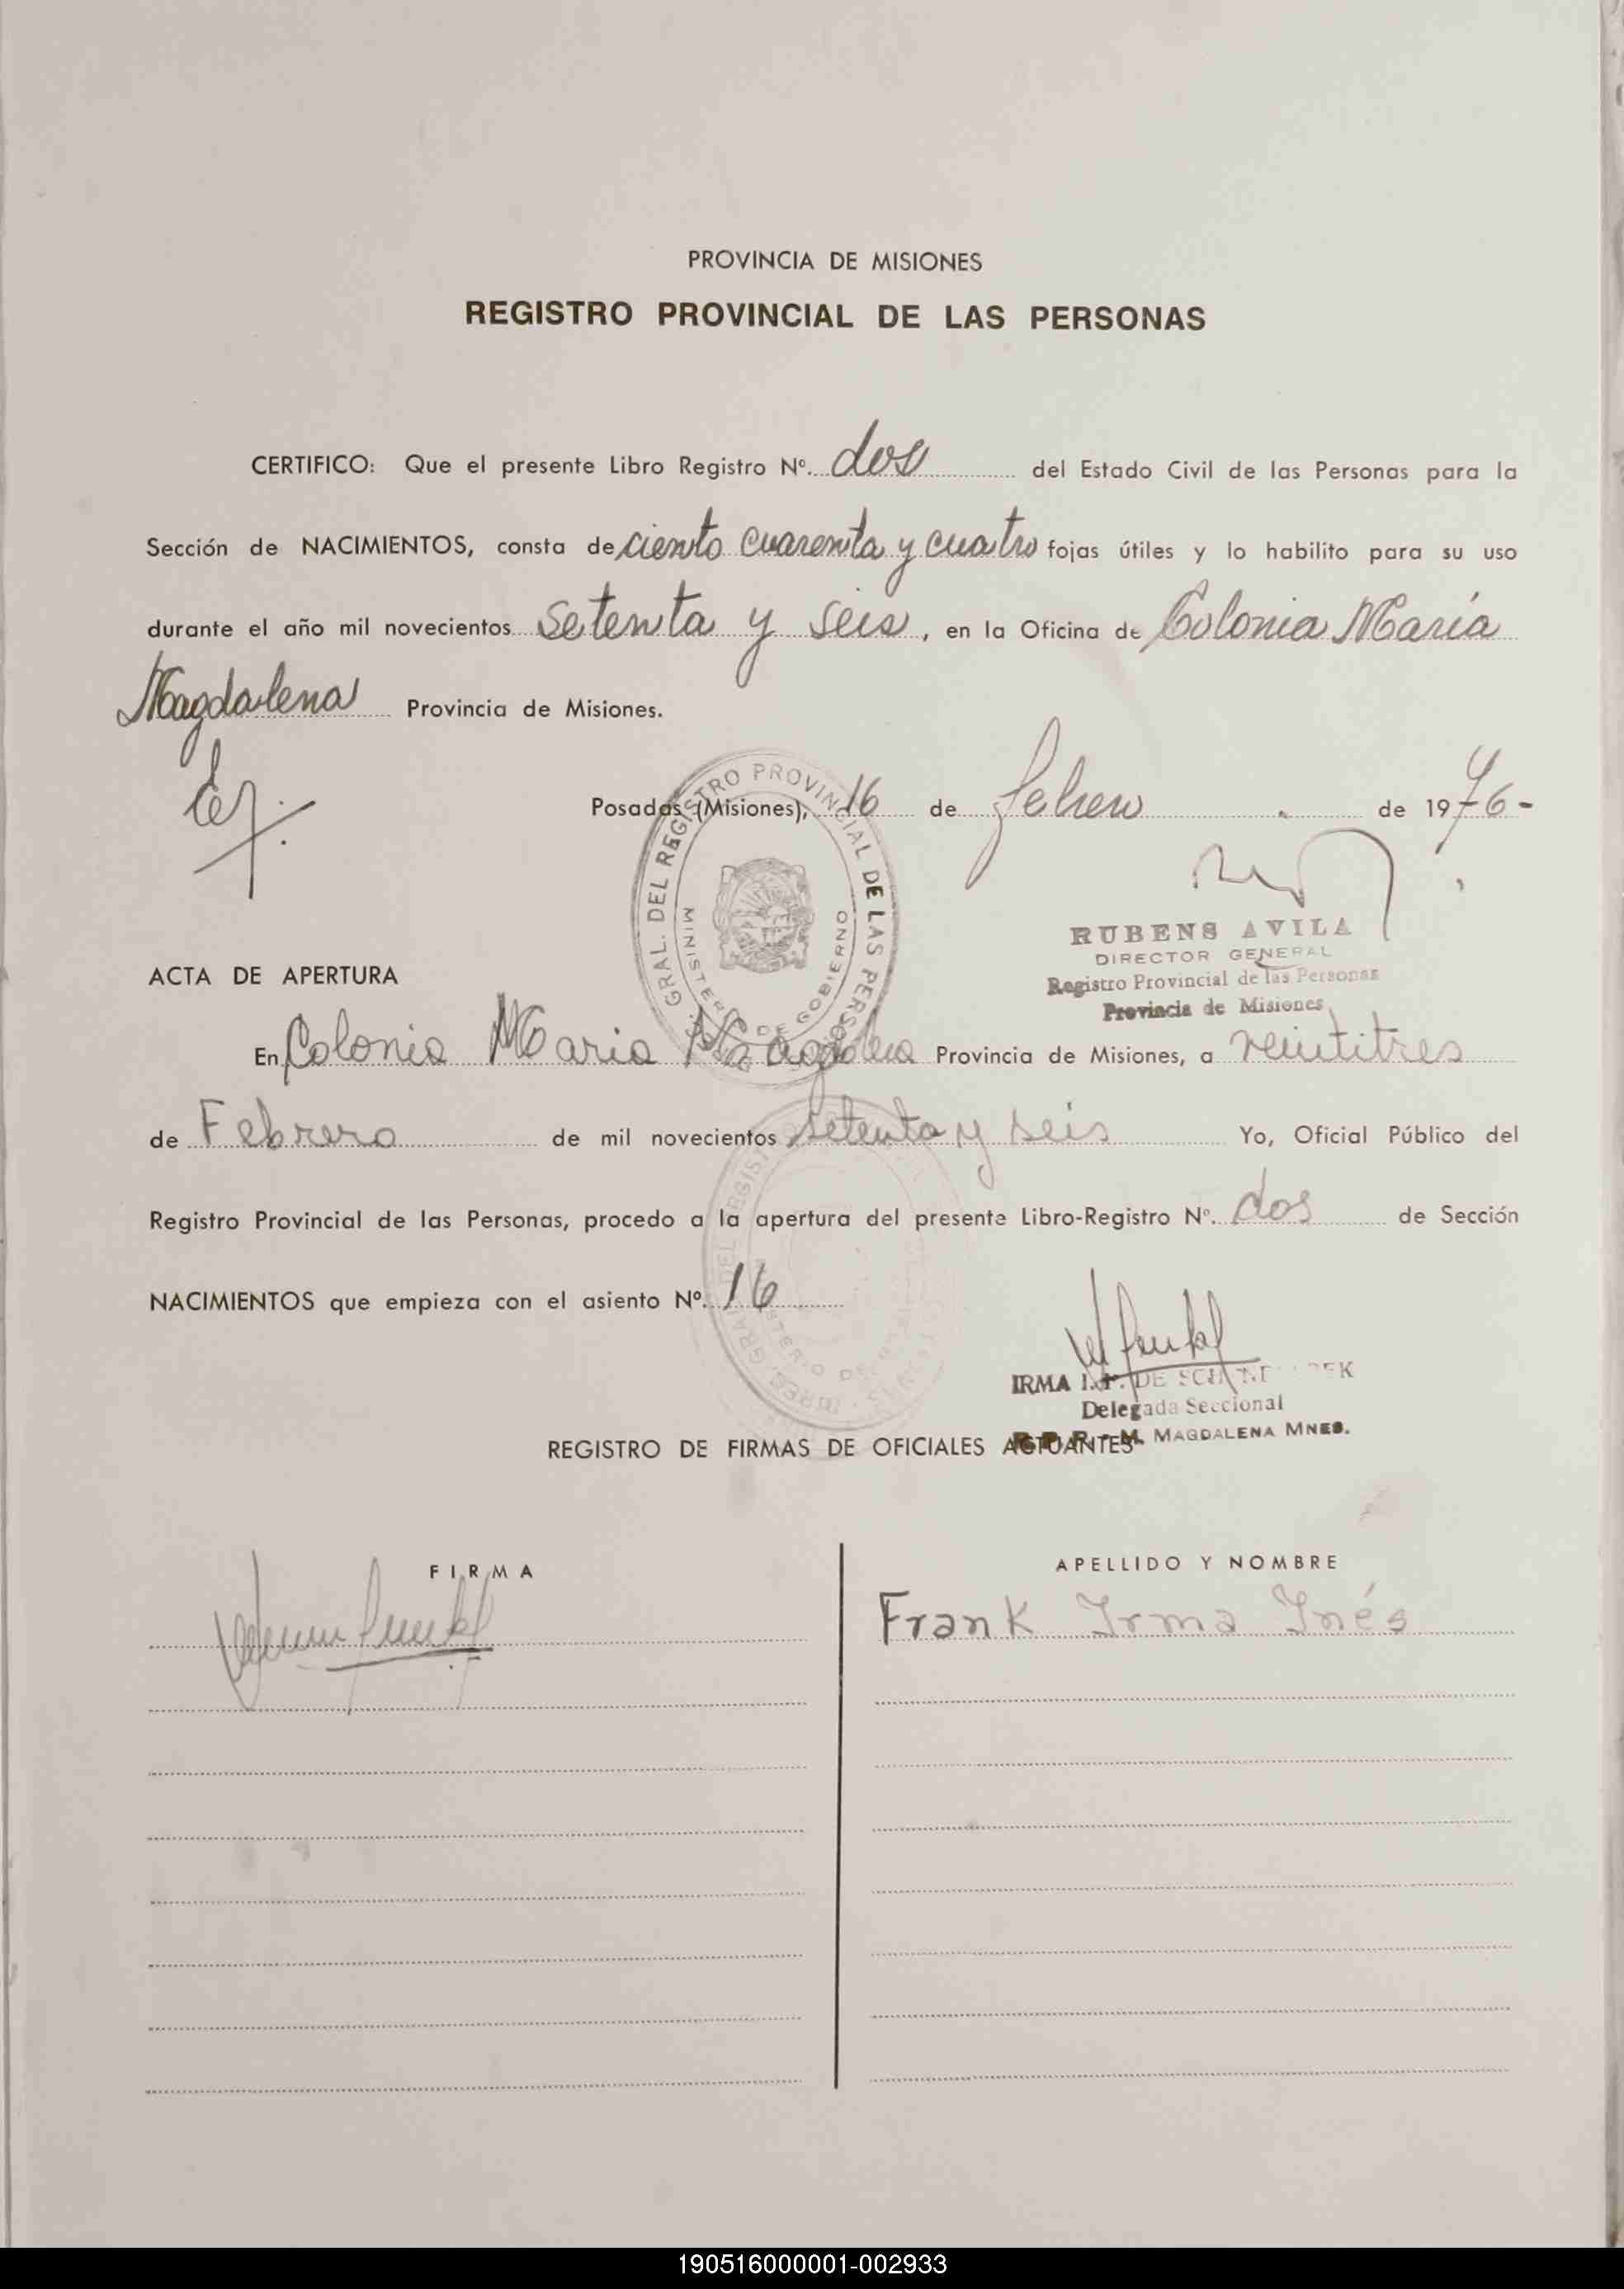 PROVINCIA DE MISIONES
REGISTRO PROVINCIAL DE LAS PERSONAS
CERTIFICO: Que el presente Libro Registro Nº. dos del Estado Civil de las Personas para la
Sección de NACIMIENTOS, consta de ciento cuarenta y cuatro fojas útiles y lo habilito para su uso
durante el año mil novecientos setenta y seis, en la Oficina de Colonia María
Magdalena Provincia de Misiones.
Posadas (Misiones), 16 de febrero de 1976-
GRAL. DEL REGISTRO PROVINCIAL DE LAS PERSONAS
MINISTERIO DE GOBIERNO
RUBENS AVILA
DIRECTOR GENERAL
Registro Provincial de las Personas
Provincia de Misiones
ACTA DE APERTURA
En Colonia Maria Magdalena Provincia de Misiones, a veintitres
de Febrero de mil novecientos setenta y seis Yo, Oficial Público del
Registro Provincial de las Personas, procedo a la apertura del presente Libro-Registro Nº. dos de Sección
NACIMIENTOS que empieza con el asiento Nº. 16
IRMA I. F. DE
Delegada Seccional
R. P. P. - M. MAGDALENA MNES.
REGISTRO DE FIRMAS DE OFICIALES ACTUANTES
FIRMA
APELLIDO Y NOMBRE
Frank Irma Inés
190516000001-002933